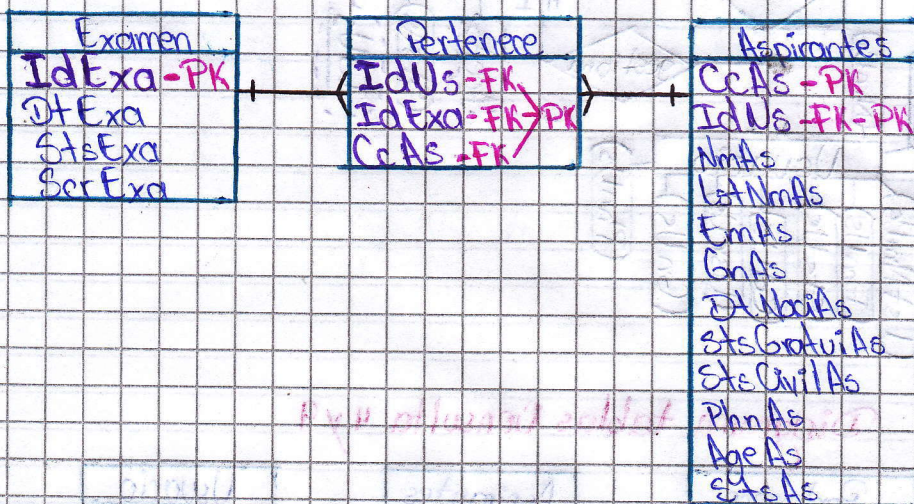 Examen
IdExa-PK
DtExa
StsExa
ScrExa
Pertenece
IdUs-FK
IdExa-FK PK
CcAs-FK
Aspirantes
CcAs-PK
IdUs-FK-PK
NmAs
LstNmAs
EmAs
GnAs
DtNaciAs
StsGratuiAs
StsCivilAs
PhnAs
AgeAs
StsAs